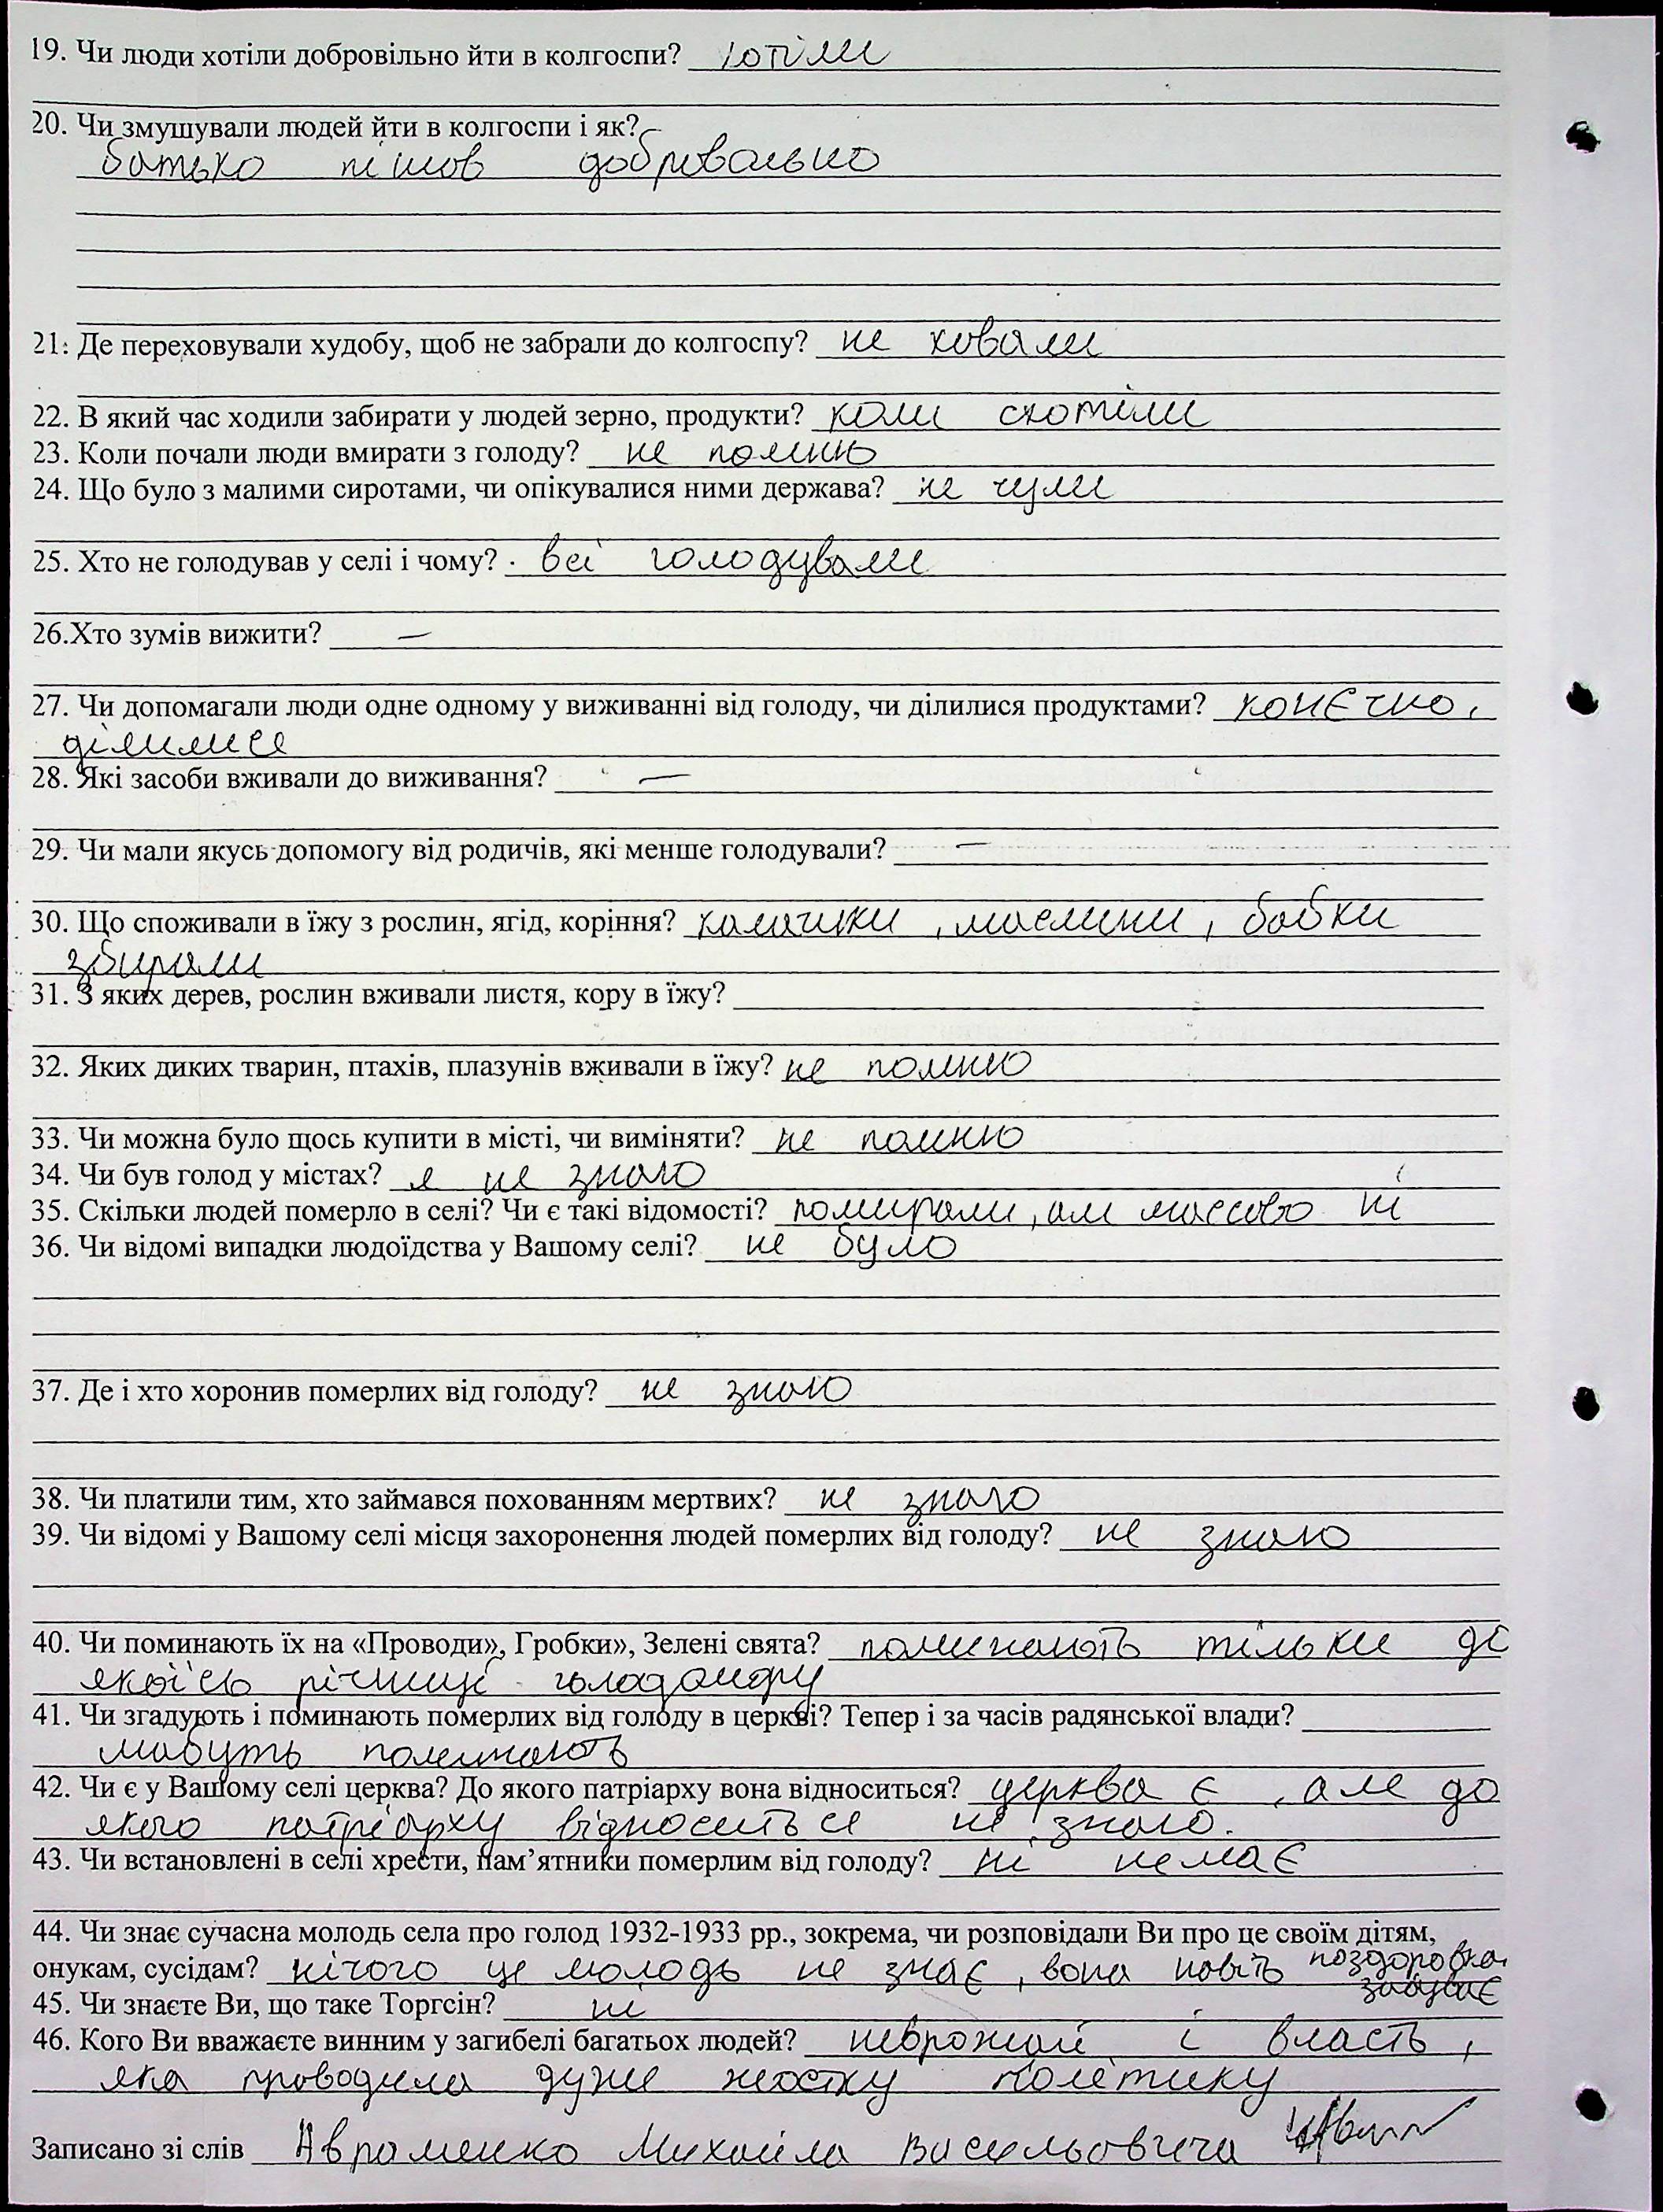 19. Чи люди хотіли добровільно йти в колгоспи? хотіли
20. Чи змушували людей йти в колгоспи і як?
батько пішов добровально
21. Де переховували худобу, щоб не забрали до колгоспу? не ховали
22. В який час ходили забирати у людей зерно, продукти? коли схотіли
23. Коли почали люди вмирати з голоду? не помню
24. Що було з малими сиротами, чи опікувалися ними держава? не чули
25. Хто не голодував у селі і чому? всі голодували
26.Хто зумів вижити? —
27. Чи допомагали люди одне одному у виживанні від голоду, чи ділилися продуктами? конєчно,
ділилися
28. Які засоби вживали до виживання? —
29. Чи мали якусь допомогу від родичів, які менше голодували? —
30. Що споживали в їжу з рослин, ягід, коріння? калачики, маслини, бабки
збирали
31. З яких дерев, рослин вживали листя, кору в їжу?
32. Яких диких тварин, птахів, плазунів вживали в їжу? не помню
33. Чи можна було щось купити в місті, чи виміняти? не помню
34. Чи був голод у містах? я не знаю
35. Скільки людей померло в селі? Чи є такі відомості? помирали, али массово ні
36. Чи відомі випадки людоїдства у Вашому селі? не було
37. Де і хто хоронив померлих від голоду? не знаю
38. Чи платили тим, хто займався похованням мертвих? не знаю
39. Чи відомі у Вашому селі місця захоронення людей померлих від голоду? не знаю
40. Чи поминають їх на «Проводи», Гробки», Зелені свята? поминають тільки до
якоїсь річниці голодомору
41. Чи згадують і поминають померлих від голоду в церкві? Тепер і за часів радянської влади?
мабуть поминають
42. Чи є у Вашому селі церква? До якого патріарху вона відноситься? церква є, але до
якого патріарху відноситься не знаю.
43. Чи встановлені в селі хрести, пам’ятники померлим від голоду? ні немає
44. Чи знає сучасна молодь села про голод 1932-1933 рр., зокрема, чи розповідали Ви про це своїм дітям,
онукам, сусідам? нічого це молодь не знає, вона навіть
забуває
45. Чи знаєте Ви, що таке Торгсін? ні
46. Кого Ви вважаєте винним у загибелі багатьох людей? неврожай і власть,
яка проводила дуже жостку політику
Записано зі слів Авраменко Михайла Васильовича